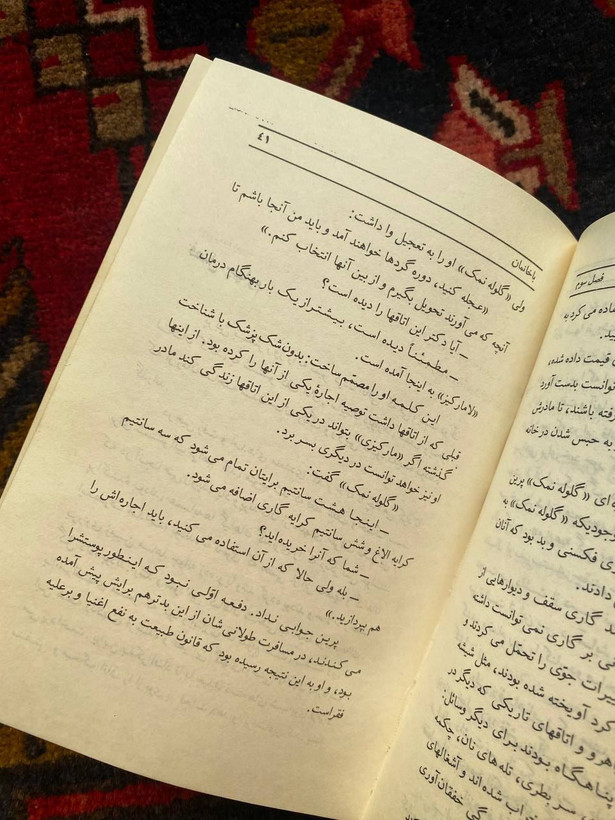 فصل سوم
باخانمان
۴۱
ولی «گلوله نمک» او را به تعجیل وا داشت:
«عجله کنید، دوره گردها خواهند آمد و باید من آنجا باشم تا
آنچه که می‌آورند تحویل بگیرم و از بین آنها انتخاب کنم.»
«آیا دکتر این اتاقها را دیده است؟
ـ مطمئناً دیده است، بیشتر از یک بار بهنگام درمان
«لامارکیز» به اینجا آمده است.
این کلمه او را مصمّم ساخت: بدون شک پزشک با شناخت
قبلی که از اتاقها داشت توصیه اجارهٔ یکی از آنها را کرده بود. از اینها
گذشته اگر «مارکیزی» بتواند در یکی از این اتاقها زندگی کند مادر
او نیز خواهد توانست در دیگری بسر برد.
«گلوله نمک» گفت:
ـ اینجا هشت سانتیم برایتان تمام می‌شود که سه سانتیم
کرایه الاغ و شش سانتیم کرایه گاری اضافه می‌شود.
ـ شما که آنرا خریده‌اید؟
ـ بله ولی حالا که از آن استفاده می‌کنید، باید اجاره‌اش را
هم بپردازید.»
پرین جوابی نداد. دفعه اوّلی نبود که اینطور پوستشرا
می‌کندند، در مسافرت طولانی‌شان از این بدترهم برایش پیش آمده
بود، و او به این نتیجه رسیده بود که قانون طبیعت به نفع اغنیا و برعلیه
فقراست.
می‌کرد به
قیمت داده شده،
توانست بدست آورد
رفته باشند، تا مادرش
به حبس شدن در خانه
ای «گلوله نمک» پرین
«گلوله نمک» به
فکسنی و بد بود که آنان
دادند.
گاری سقف و دیوارهایی از
بر گاری نمی توانست داشته
جوّی را تحمّل می‌کردند و
آویخته شده بودند، مثل شیشه
و اتاقهای تاریکی که دیگر در
پناهگاه بودند برای دیگر وسایل:
بطری، تله‌های نان، چکمه
شده اند و آشغالهای
خفقان‌آوری